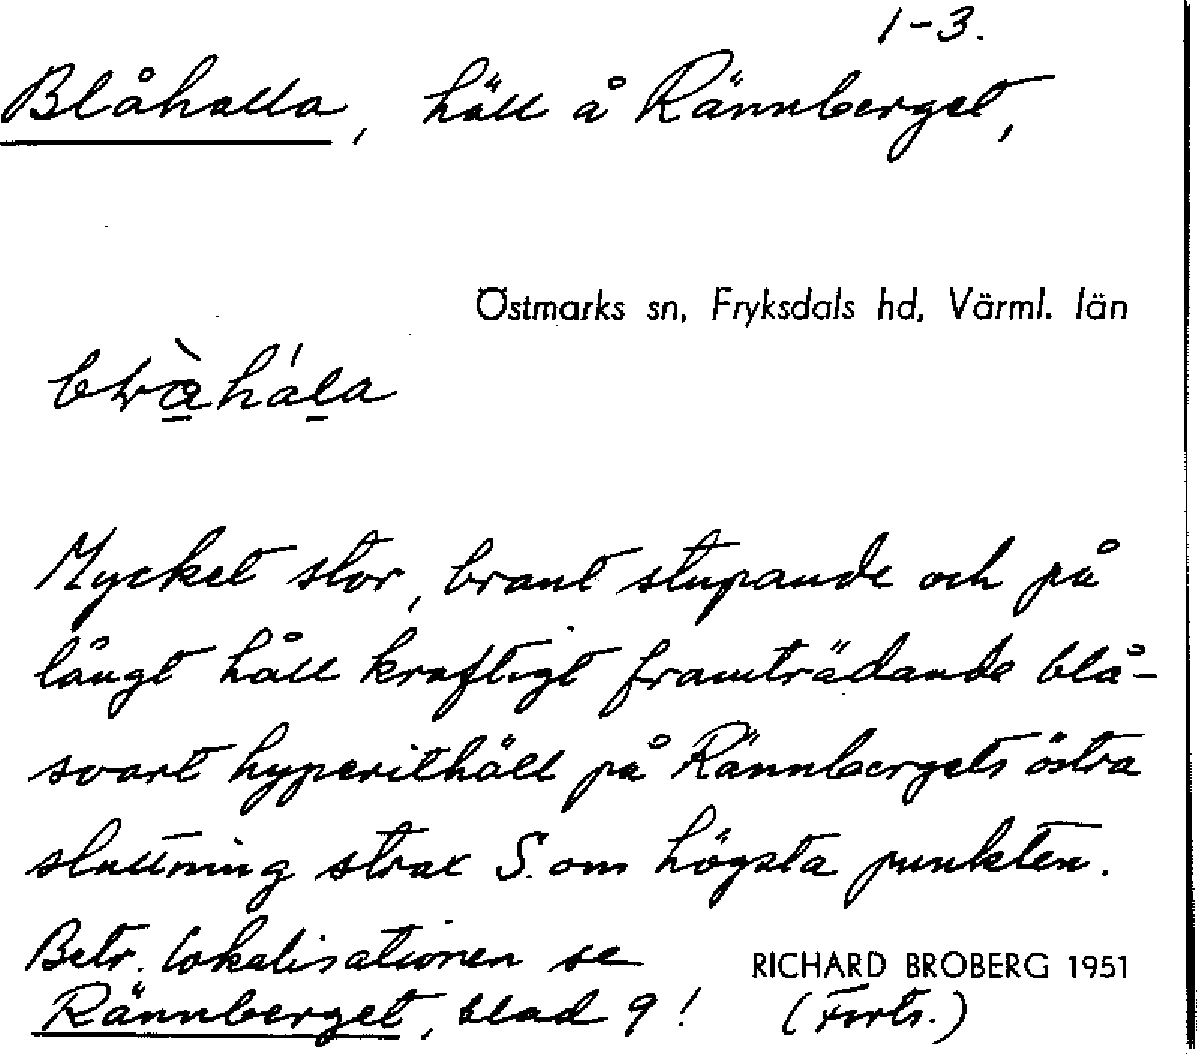 1-3.
Blåhalla, häll å Rännberget,
Östmarks sn, Fryksdals hd, Värml. län
Mycket stor, brant stupande och på
långt håll kraftigt framträdande blå-
svart hyperithäll på Rännbergets östra
sluttning strax S. om högsta punkten.
Betr. lokalisationen se
RICHARD BROBERG 1951
Rännberget, blad 9! (Forts.)